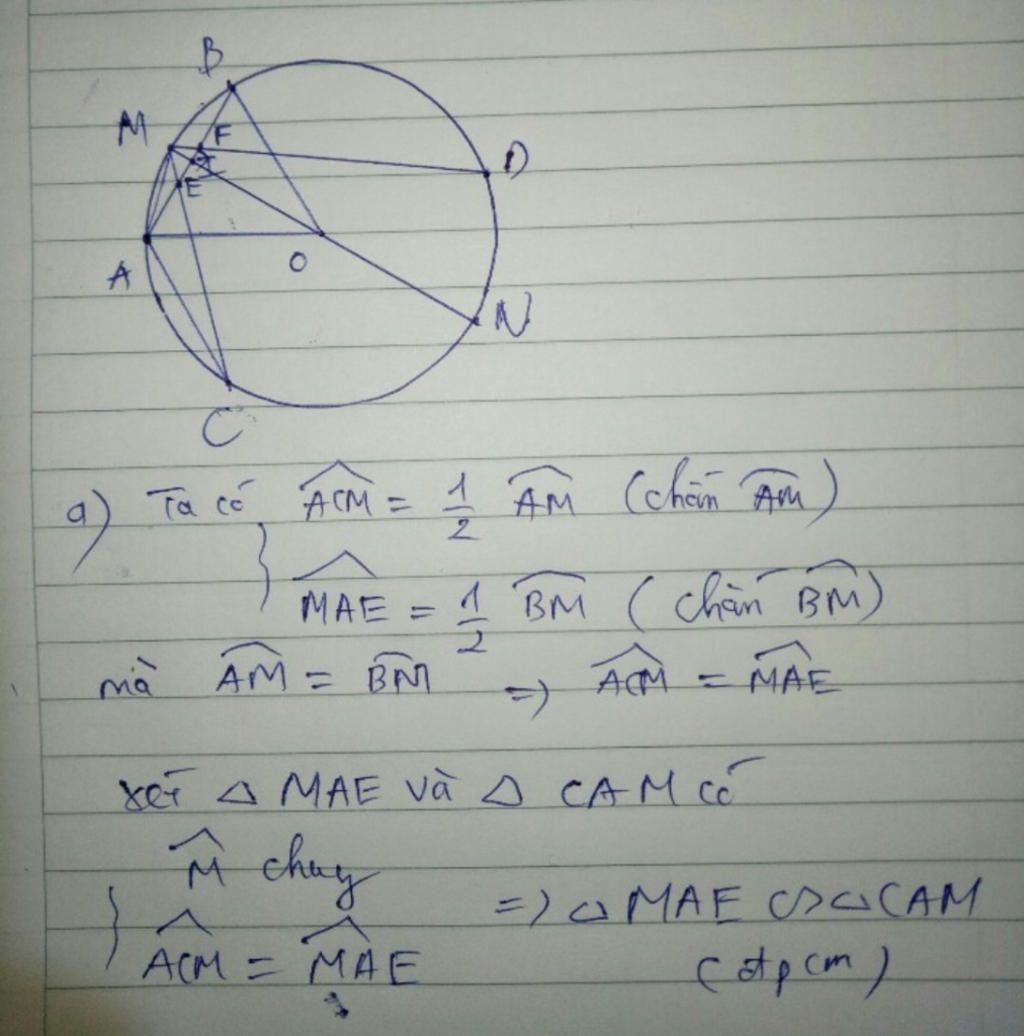 B
M F D
I
E
A O
N
C
a) Ta có $\widehat{ACM} = \frac{1}{2} \overset{\frown}{AM}$ (chắn $\overset{\frown}{AM}$)
$\widehat{MAE} = \frac{1}{2} \overset{\frown}{BM}$ (chắn $\overset{\frown}{BM}$)
mà $\overset{\frown}{AM} = \overset{\frown}{BM}$ => $\widehat{ACM} = \widehat{MAE}$
xét △ MAE và △ CAM có
$\widehat{M}$ chung
$\widehat{ACM} = \widehat{MAE}$ => △ MAE ∽ △ CAM
(đpcm)